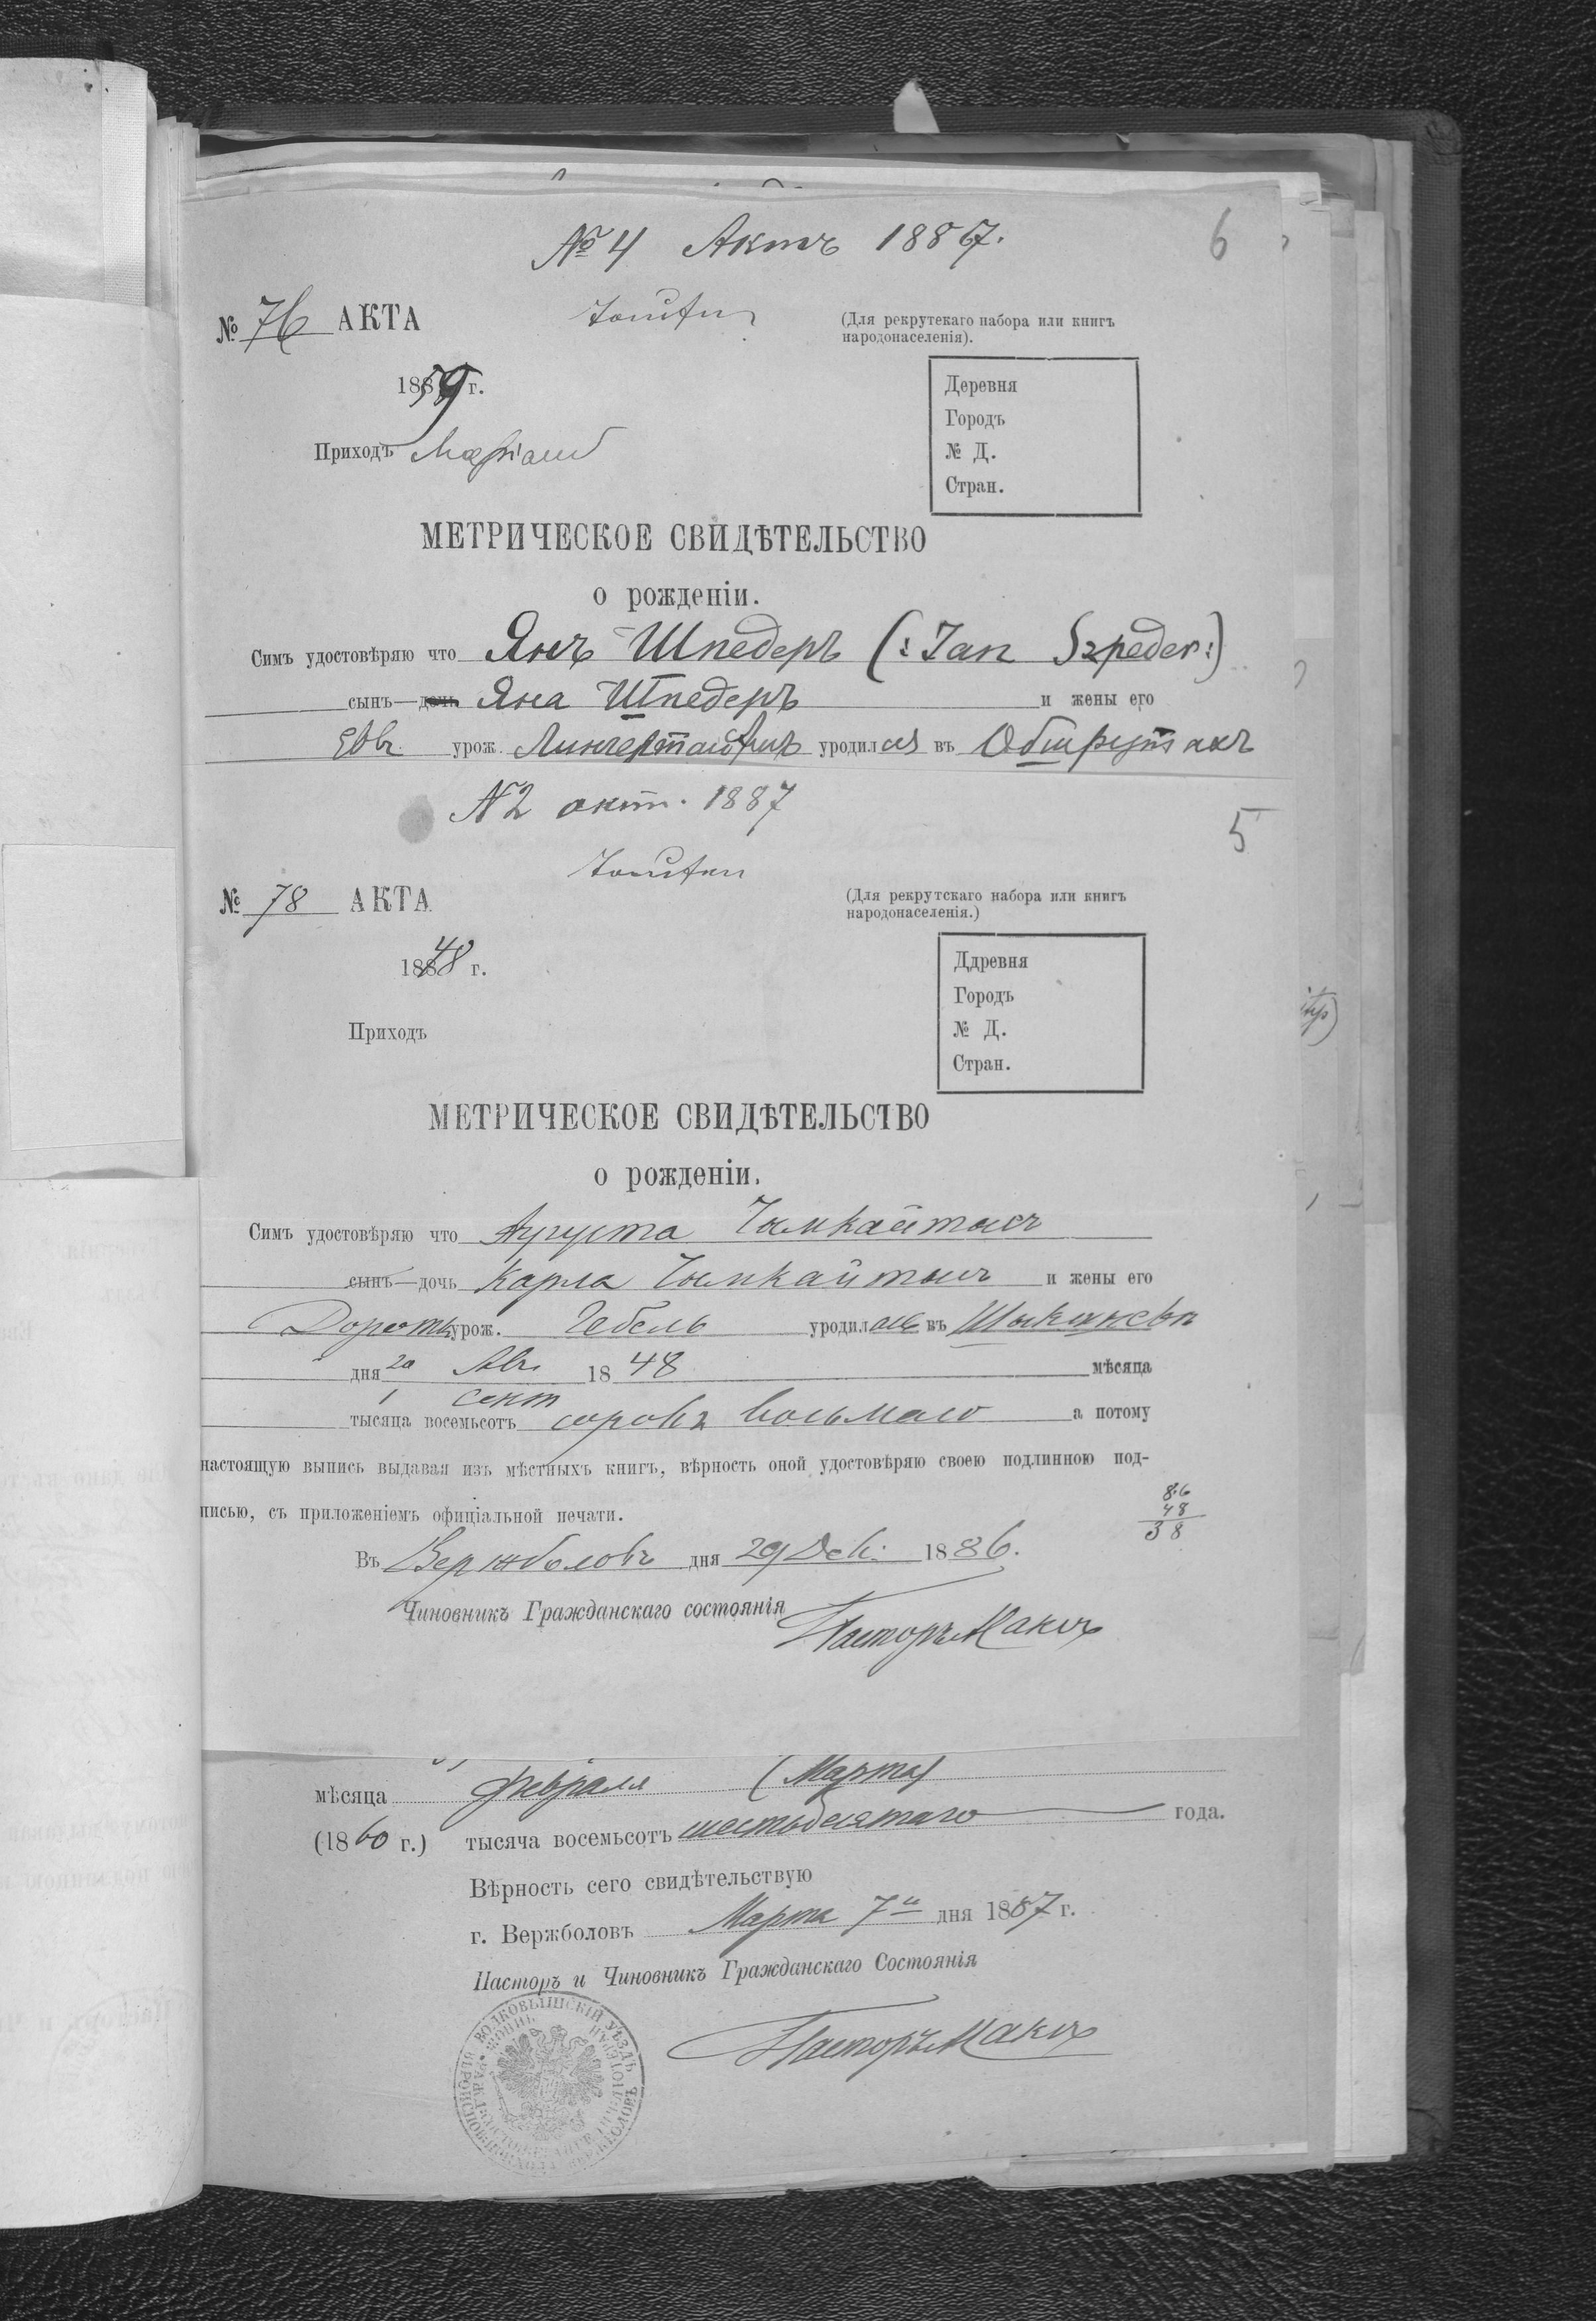 № 4 Актъ 1887.
6
№ 76 АКТА
(Для рекрутекаго набора или книгъ
народонаселенія).
1859 г.
Деревня
Городъ
Приходъ
№ Д.
Стран.
МЕТРИЧЕСКОЕ СВИДѢТЕЛЬСТВО
о рожденіи.
Симъ удостовѣряю что Янъ Шпедеръ (: Jan Szpeder :)
сынъ—дочь Яна Шпедеръ и жены его
Евы урож. уродился въ
N 2 акт. 1887
5
№ 78 АКТА
(Для рекрутскаго набора или книгъ
народонаселенія.)
1848 г.
Ддревня
Городъ
Приходъ
№ Д.
Стран.
МЕТРИЧЕСКОЕ СВИДѢТЕЛЬСТВО
о рожденіи.
Симъ удостовѣряю что Августа
сынъ—дочь Карла и жены его
урож. Гебель уродилась въ
дня 20 Авг. 18 48 мѣсяца
1 сент
тысяца восемьсотъ сорокъ восьмаго а потому
настоящую выпись выдавая изъ мѣстныхъ книгъ, вѣрность оной удостовѣряю своею подлинною под-
писью, съ приложеніемъ офиціальной печати.
86
48
38
Въ Вержболовѣ дня 29 Дек. 1886.
Чиновникъ Гражданскаго состоянія
Пасторъ
мѣсяца февраля (Марта)
(1860 г.) тысяча восемьсотъ шестьдесятаго года.
Вѣрность сего свидѣтельствую
г. Вержболовъ Марта 7 дня 1887 г.
Пасторъ и Чиновникъ Гражданскаго Состоянія
Пасторъ
ВОЛКОВЫШСКІЙ УѢЗДЪ